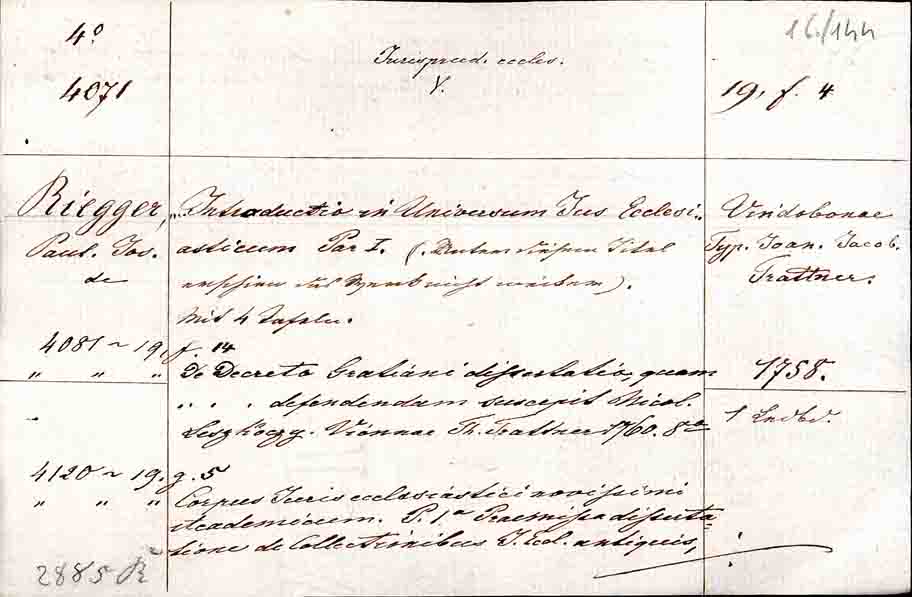 4º
4071
Jurisprud. eccles.
Y.
16/144
19, f. 4
Riegger,
Paul. Jos.
de
„Introductio in Universum Jus Ecclesi„
asticum Par I. (. Unter diesem Titel
erschien das Werk nicht weiter).
Mit 4 Tafeln.
Vindobonae
Typ. Joan. Jacob.
Trattner.
1758.
1 Lndbd.
4081 ~ 19, f. 14
„ „ „ De Decreto Gratiani dissertatio, quam
. . . defendendam suscepit Nicol.
Viennae Th. Trattner 1760. 8º
4120 ~ 19. g. 5
„ „ „ Corpus Juris ecclesiastici novissimi
Academicum. P. 1.ª Praemissa disserta-
tione de Collectionibus J. Ecl. antiquis,
2885 R